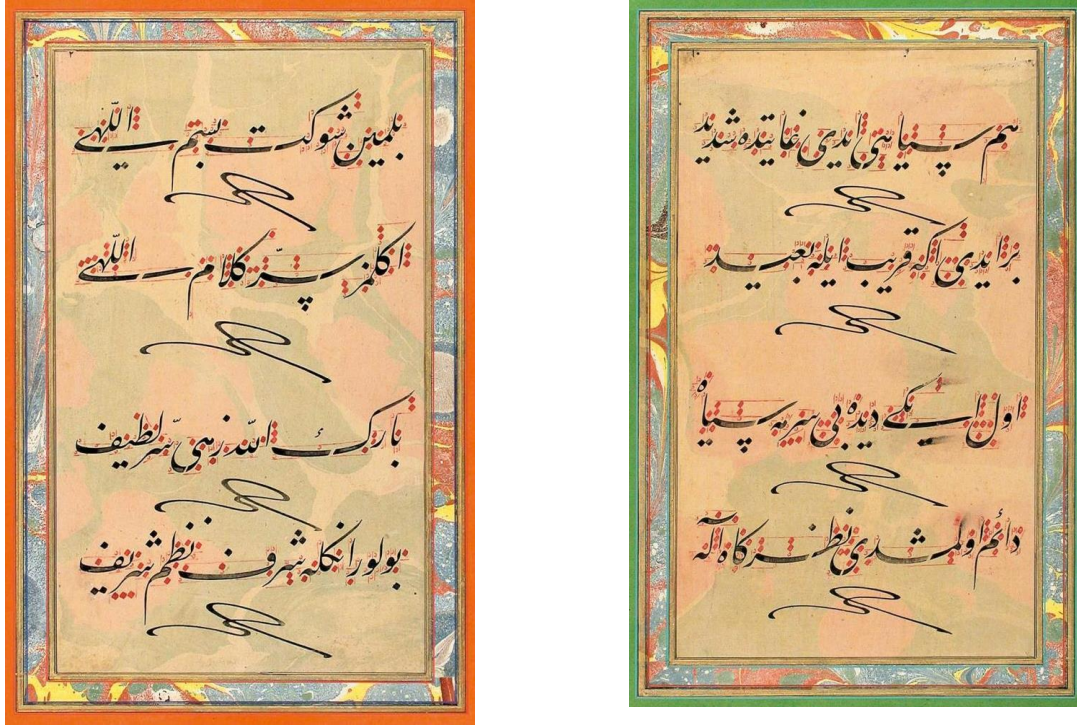 بلمین شوکت بسم اللهی
اکلمز سرّ کلام اللهی
بارک الله زهی سرّ لطیف
بولور انکله شرف نظم شریف
هم سیاهی ایدی غایتده شدید
بر ایدی اکه قریب ایله بعید
اول ایکی دیده بی سرمه سیاه
دائم اولمشدی نظرکاه اله